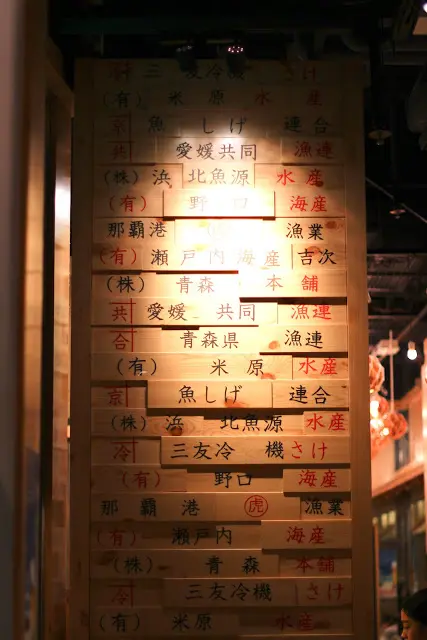 冷 三友冷機 さけ
(有) 米原 水産
京 魚しげ 連合
共 愛媛共同 漁連
(株) 浜 北魚源 水産
(有) 野口 海産
那覇港 漁業
(有) 瀬戸内海産 吉次
(株) 青森 本舗
共 愛媛 共同 漁連
合 青森県 漁連
(有) 米原 水産
京 魚しげ 連合
(株) 浜 北魚源 水産
冷 三友冷 機 さけ
(有) 野口 海産
那覇港 虎 漁業
(有) 瀬戸内 海産
(株) 青森 本舗
冷 三友冷機 さけ
(有) 米原 水産